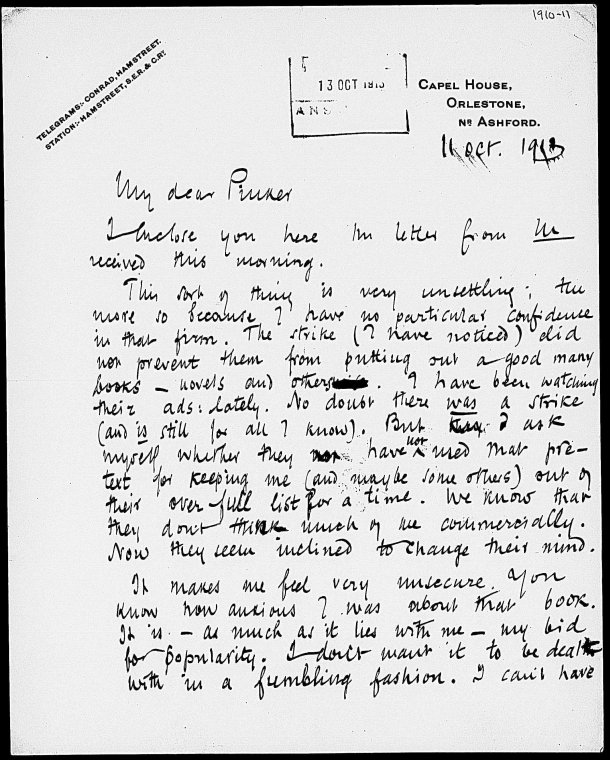 1910-11
TELEGRAMS:- CONRAD, HAMSTREET.
STATION:- HAMSTREET, S.E.R. & C.RY
13 OCT 1913
ANS
CAPEL HOUSE,
ORLESTONE,
NR ASHFORD.
11 Oct. 1913
My dear Pinker
I Enclose you here the letter from M
received this morning.
This sort of thing is very unsettling; the
more so because I have no particular confidence
in that firm. The strike (I have noticed) did
not prevent them from putting out a good many
books – novels and others. I have been watching
their ads: lately. No doubt there was a strike
(and is still for all I know). But I ask
myself whether they have not used that pre-
text for keeping me (and maybe some others) out of
their over-full list for a time. We know that
they dont think much of me commercially.
Now they seem inclined to change their mind.
It makes me feel very unsecure. You
know how anxious I was about that book.
It is – as much as it lies with me – my bid
for popularity. I don't want it to be dealt
with in a fumbling fashion. I can't have